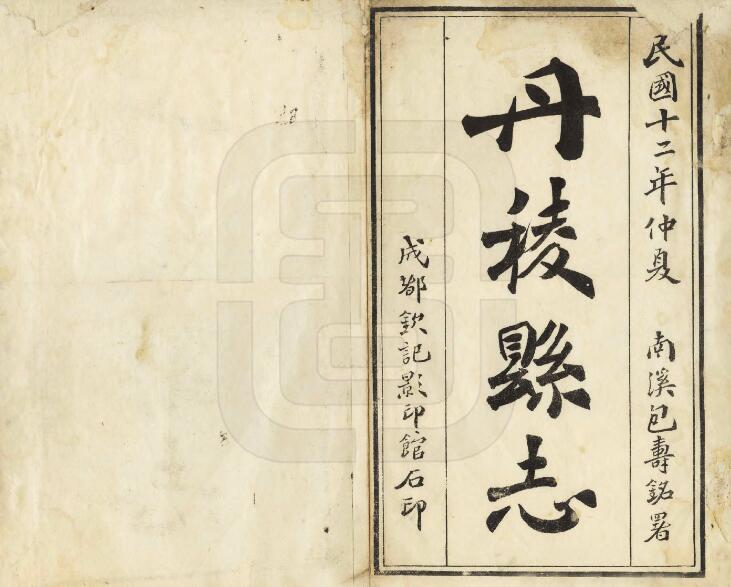 民國十二年仲夏　南溪包壽銘署
丹稜縣志
成都欽記影印館石印